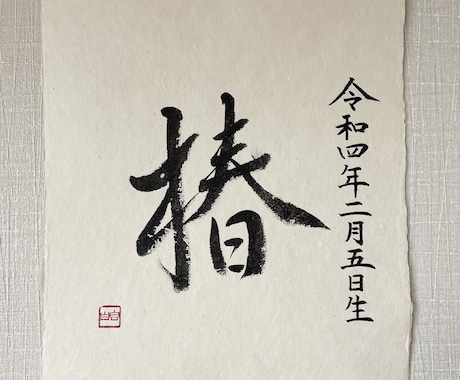 令和四年二月五日生
椿